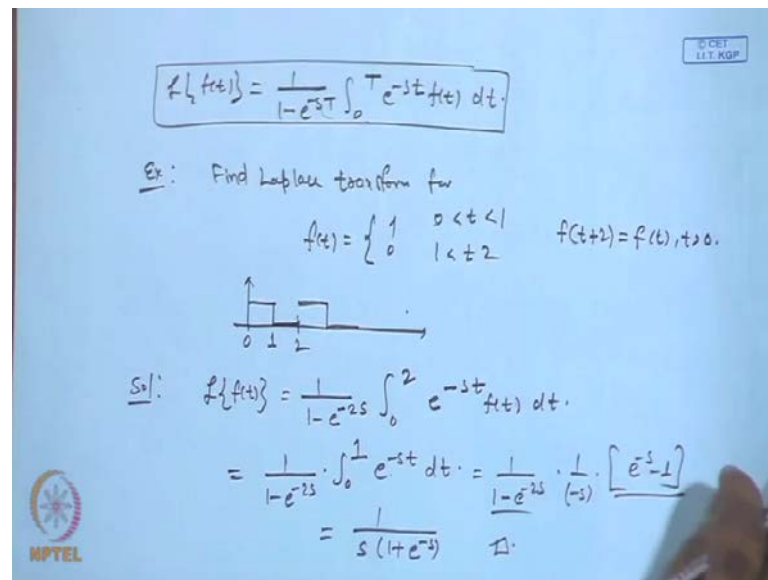 © CET
I.I.T. KGP
L{f(t)} = 1/(1-e^{-sT}) ∫_0^T e^{-st} f(t) dt.
Ex: Find Laplace transform for
f(t) = { 1 0 < t < 1
0 1 < t 2 f(t+2) = f(t), t>0.
0 1 2
Sol: L{f(t)} = 1/(1-e^{-2s}) ∫_0^2 e^{-st} f(t) dt.
= 1/(1-e^{-2s}) · ∫_0^1 e^{-st} dt. = 1/(1-e^{-2s}) · 1/(-s) · [e^{-s}-1]
= 1/(s(1+e^{-s})) □.
NPTEL